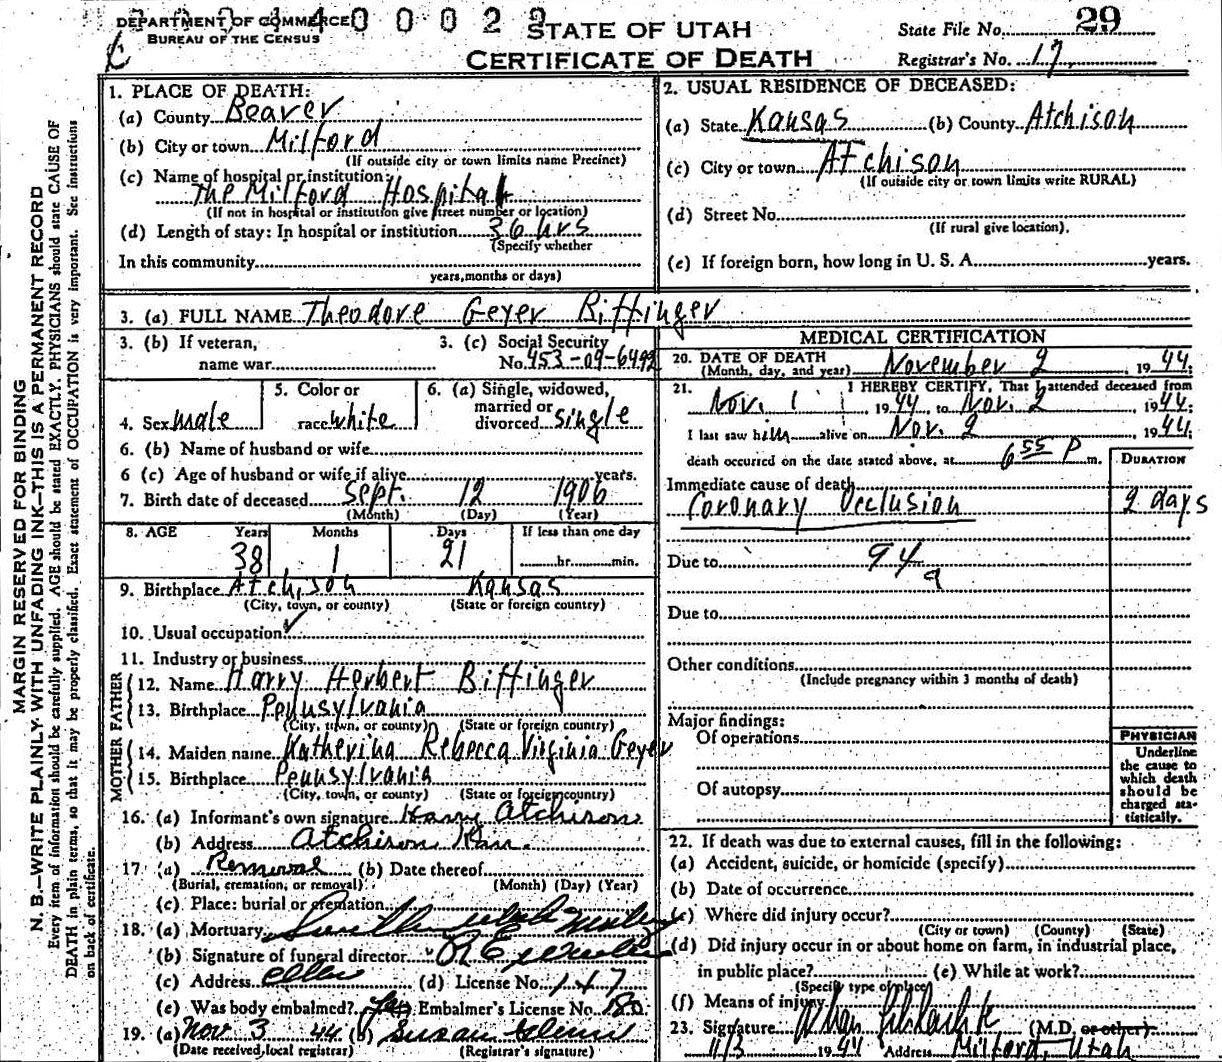 DEPARTMENT OF COMMERCE
BUREAU OF THE CENSUS
STATE OF UTAH
CERTIFICATE OF DEATH
State File No. 29
Registrar's No. 17
MARGIN RESERVED FOR BINDING
N. B.—WRITE PLAINLY WITH UNFADING INK—THIS IS A PERMANENT RECORD
Every item of information should be carefully supplied. AGE should be stated EXACTLY. PHYSICIANS should state CAUSE OF
DEATH in plain terms, so that it may be properly classified. Exact statement of OCCUPATION is very important. See instructions
on back of certificate.
1. PLACE OF DEATH:
(a) County Beaver
(b) City or town Milford
(If outside city or town limits name Precinct)
(c) Name of hospital or institution:
The Milford Hospital
(If not in hospital or institution give street number or location)
(d) Length of stay: In hospital or institution 36 hrs
(Specify whether
In this community
years, months or days)
2. USUAL RESIDENCE OF DECEASED:
(a) State Kansas (b) County Atchison
(c) City or town Atchison
(If outside city or town limits write RURAL)
(d) Street No.
(If rural give location).
(e) If foreign born, how long in U. S. A. years.
3. (a) FULL NAME Theodore Geyer Biffinger
3. (b) If veteran, 3. (c) Social Security
name war No. 453-09-6492
4. Sex male 5. Color or race white 6. (a) Single, widowed, married or divorced single
6. (b) Name of husband or wife
6 (c) Age of husband or wife if alive years.
7. Birth date of deceased Sept. 12 1906
(Month) (Day) (Year)
8. AGE Years Months Days If less than one day
38 1 21 hr. min.
9. Birthplace Atchison Kansas
(City, town, or county) (State or foreign country)
10. Usual occupation
11. Industry or business
FATHER
12. Name Harry Herbert Biffinger
13. Birthplace Pennsylvania
(City, town, or county) (State or foreign country)
MOTHER
14. Maiden name Katherina Rebecca Virginia Geyer
15. Birthplace Pennsylvania
(City, town, or county) (State or foreign country)
16. (a) Informant's own signature Harry Atchison
(b) Address Atchison Kan.
17 (a) Removal (b) Date thereof
(Burial, cremation, or removal) (Month) (Day) (Year)
(c) Place: burial or cremation
18. (a) Mortuary
(b) Signature of funeral director
(c) Address (d) License No. 147
(e) Was body embalmed? Yes Embalmer's License No.
19. (a) Nov 3 44 (b) Susan
(Date received local registrar) (Registrar's signature)
MEDICAL CERTIFICATION
20. DATE OF DEATH
(Month, day, and year) November 2, 1944.
21. I HEREBY CERTIFY, That I attended deceased from
Nov. 1, 1944, to Nov. 2, 1944.
I last saw him alive on Nov. 2, 1944.
death occuried on the date stated above, at 6 55 P m. DURATION
Immediate cause of death
Coronary Occlusion 2 days
Due to 94a
Due to
Other conditions
(Include pregnancy within 3 months of death)
Major findings:
Of operations
Of autopsy
PHYSICIAN
Underline
the cause to
which death
should be
charged sta-
tistically.
22. If death was due to external causes, fill in the following:
(a) Accident, suicide, or homicide (specify)
(b) Date of occurrence
(c) Where did injury occur?
(City or town) (County) (State)
(d) Did injury occur in or about home on farm, in industrial place,
in public place? (e) While at work?
(Specify type of place)
(f) Means of injury
23. Signature (M.D. or other)
11/3 1944 Address Milford, Utah